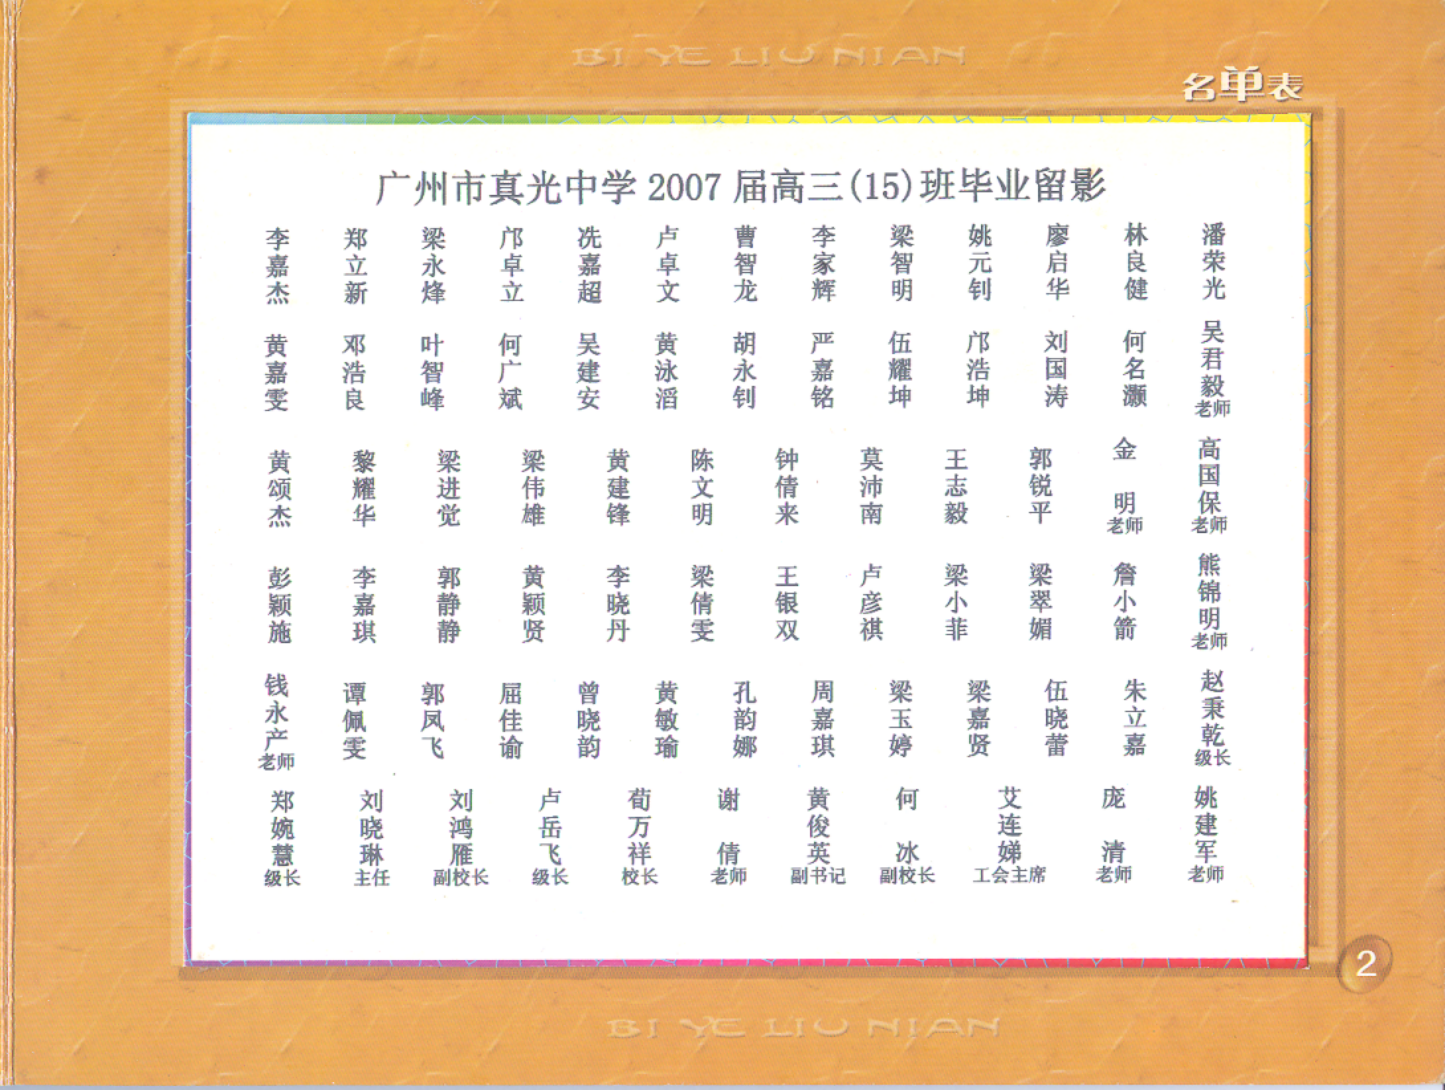 BI YE LIU NIAN
名单表
广州市真光中学 2007 届高三(15)班毕业留影
李嘉杰 郑立新 梁永烽 邝卓立 冼嘉超 卢卓文 曹智龙 李家辉 梁智明 姚元钊 廖启华 林良健 潘荣光
黄嘉雯 邓浩良 叶智峰 何广斌 吴建安 黄泳滔 胡永钊 严嘉铭 伍耀坤 邝浩坤 刘国涛 何名灏 吴君毅老师
黄颂杰 黎耀华 梁进觉 梁伟雄 黄建锋 陈文明 钟倩来 莫沛南 王志毅 郭锐平 金明老师 高国保老师
彭颖施 李嘉琪 郭静静 黄颖贤 李晓丹 梁倩雯 王银双 卢彦祺 梁小菲 梁翠媚 詹小箭 熊锦明老师
钱永产老师 谭佩雯 郭凤飞 屈佳谕 曾晓韵 黄敏瑜 孔韵娜 周嘉琪 梁玉婷 梁嘉贤 伍晓蕾 朱立嘉 赵秉乾级长
郑婉慧级长 刘晓琳主任 刘鸿雁副校长 卢岳飞级长 荀万祥校长 谢倩老师 黄俊英副书记 何冰副校长 艾连娣工会主席 庞清老师 姚建军老师
2
BI YE LIU NIAN